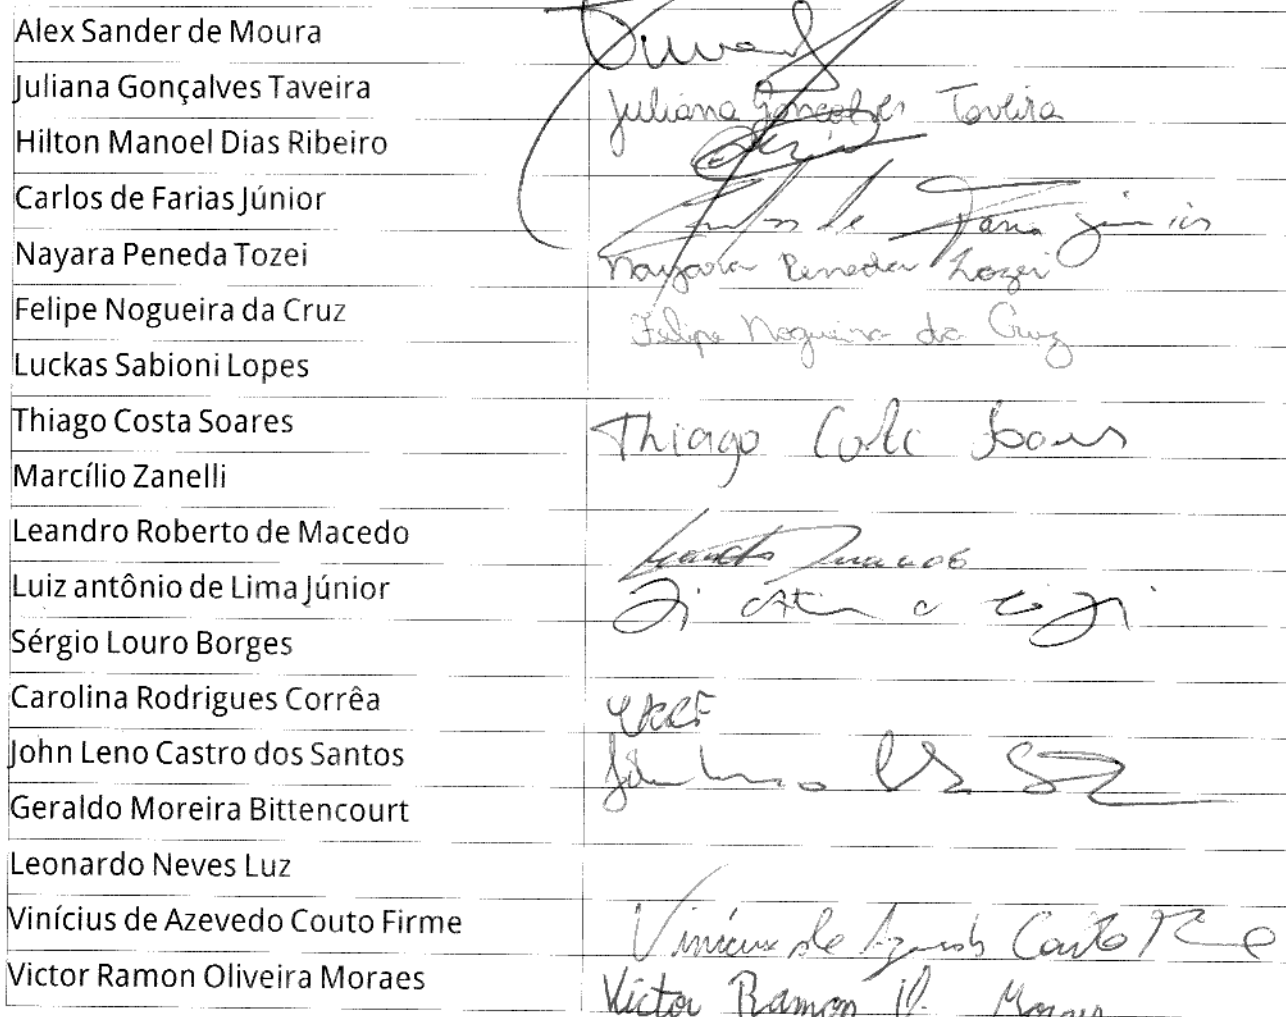 Alex Sander de Moura
Juliana Gonçalves Taveira Juliana Gonçalves Taveira
Hilton Manoel Dias Ribeiro
Carlos de Farias Júnior Carlos de Faria Júnior
Nayara Peneda Tozei Nayara Peneda Tozei
Felipe Nogueira da Cruz Felipe Nogueira da Cruz
Luckas Sabioni Lopes
Thiago Costa Soares Thiago Costa Soares
Marcílio Zanelli
Leandro Roberto de Macedo Leandro
Luiz antônio de Lima Júnior
Sérgio Louro Borges
Carolina Rodrigues Corrêa
John Leno Castro dos Santos
Geraldo Moreira Bittencourt
Leonardo Neves Luz
Vinícius de Azevedo Couto Firme Vinícius de Azevedo Couto
Victor Ramon Oliveira Moraes Victor Ramon O. Moraes